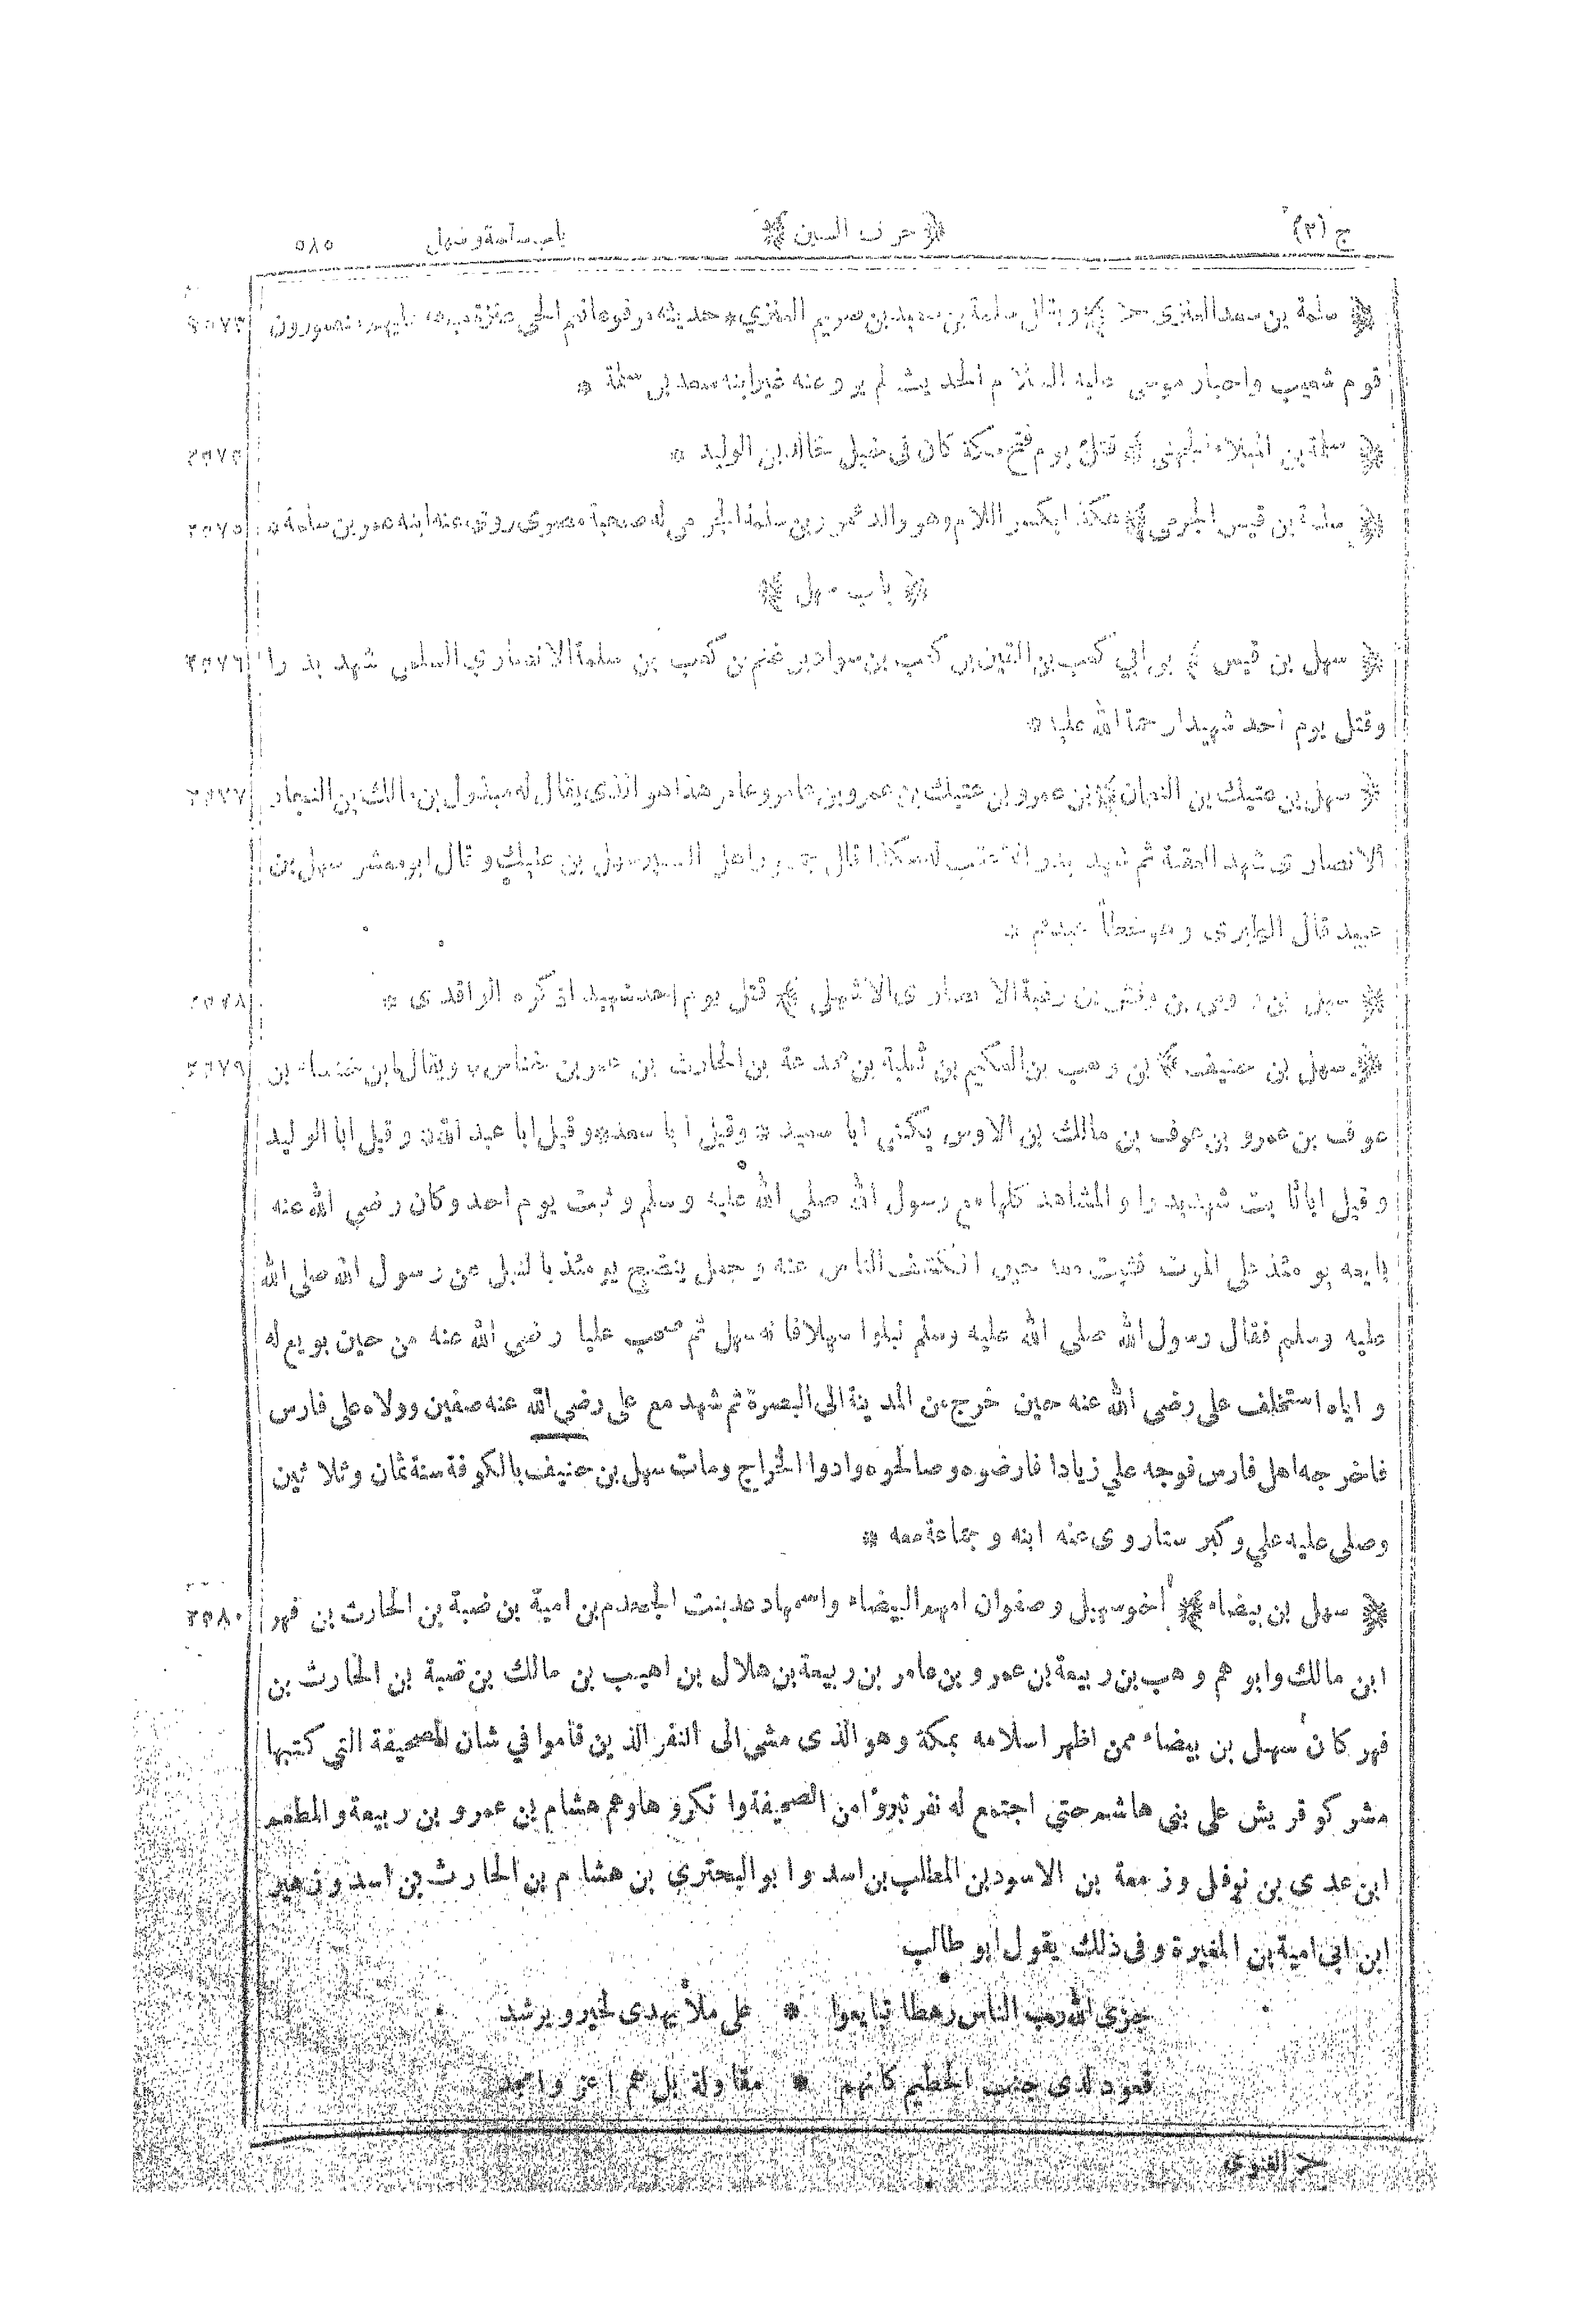 ج (٢) حرف السين باب سلمة وسهل ٥٨٥
سلمة بن سعد العنزى ويقال سلمة بن سعيد بن صريم العنزي * حديثه مرفوعا نعم الحي عنزة عليهم منصورون
قوم شعيب واحبار موسى عليه السلام الحديث لم يروعنه غير ابنه سعد بن سلمة *
سلمة بن الميلاء الجهنى قتل يوم فتح مكة كان فى خيل خالد بن الوليد *
سلمة بن قيس الجرمى هكذا بكسر اللام وهو والد عمرو بن سلمة الجرمي له صحبة بصرى روى عنه ابنه عمرو بن سلمة * ٢٥٧٥
باب سهل
سهل بن قيس بن ابي كعب بن القين بن كعب بن سواد بن غنم بن كعب بن سلمة الانصاري السلمى شهد بدرا ٢٥٧٦
وقتل يوم احد شهيدا رحمة الله عليه *
سهل بن عتيك بن النعمان بن عمرو بن عتيك بن عمرو بن عامر وعامر هذا هو الذى يقال له مبذول بن مالك بن النجار ٢٥٧٧
الانصارى شهد العقبة ثم شهد بدرا لا عقب له هكذا قال جمهور اهل السير سهل بن عتيك وقال ابو معشر سهل بن
عبيد قال الطبرى وهو خطأ عندهم *
سهل بن رومى بن وقش بن زغبة الانصارى الاشهلى قتل يوم احد شهيدا ذكره الواقدى * ٢٥٧٨
سهل بن حنيف بن وهب بن العكيم بن ثعلبة بن مجدعة بن الحارث بن عمرو بن خناس ويقال ابن خنساء بن ٢٥٧٩
عوف بن عمرو بن عوف بن مالك بن الاوس يكنى ابا سعيد * وقيل ابا سعد * وقيل ابا عبد الله * وقيل ابا الوليد
وقيل ابا ثابت شهد بدرا والمشاهد كلها مع رسول الله صلى الله عليه وسلم وثبت يوم احد وكان رضي الله عنه
بايعه يومئذ على الموت فثبت معه حين انكشف الناس عنه وجعل ينضح يومئذ بالنبل عن رسول الله صلى الله
عليه وسلم فقال رسول الله صلى الله عليه وسلم نبلوا سهلا فانه سهل ثم صحب عليا رضي الله عنه من حين بويع له
واياه استخلف على رضى الله عنه حين خرج من المدينة الى البصرة ثم شهد مع على رضي الله عنه صفين وولاه على فارس
فاخرجه اهل فارس فوجه علي زيادا فارضوه وصالحوه وادوا الخراج ومات سهل بن حنيف بالكوفة سنة ثمان وثلاثين
وصلى عليه علي وكبر ستا روى عنه ابنه وجماعة معه *
سهل بن بيضاء أخو سهيل وصفوان امهم البيضاء واسمها دعد بنت الجحدم بن امية بن ضبة بن الحارث بن فهر ٢٥٨٠
ابن مالك وابوهم وهب بن ربيعة بن عمرو بن عامر بن ربيعة بن هلال بن اهيب بن مالك بن ضبة بن الحارث بن
فهر كان سهل بن بيضاء ممن اظهر اسلامه بمكة وهو الذى مشى الى النفر الذين قاموا في شأن الصحيفة التي كتبها
مشركو قريش على بنى هاشم حتي اجتمع له نفر تبرؤا من الصحيفة وانكروها وهم هشام بن عمرو بن ربيعة والمطعم
ابن عدى بن نوفل وزمعة بن الاسود بن المطلب بن اسد وابو البحتري بن هشام بن الحارث بن اسد وزهير
ابن ابى امية بن المغيرة وفى ذلك يقول ابو طالب
جزى الله رب الناس رهطا تبايعوا * على ملأ يهدى لخير ويرشد
قعود لدى جنب الحطيم كانهم * مقاولة بل هم اعز وامجد